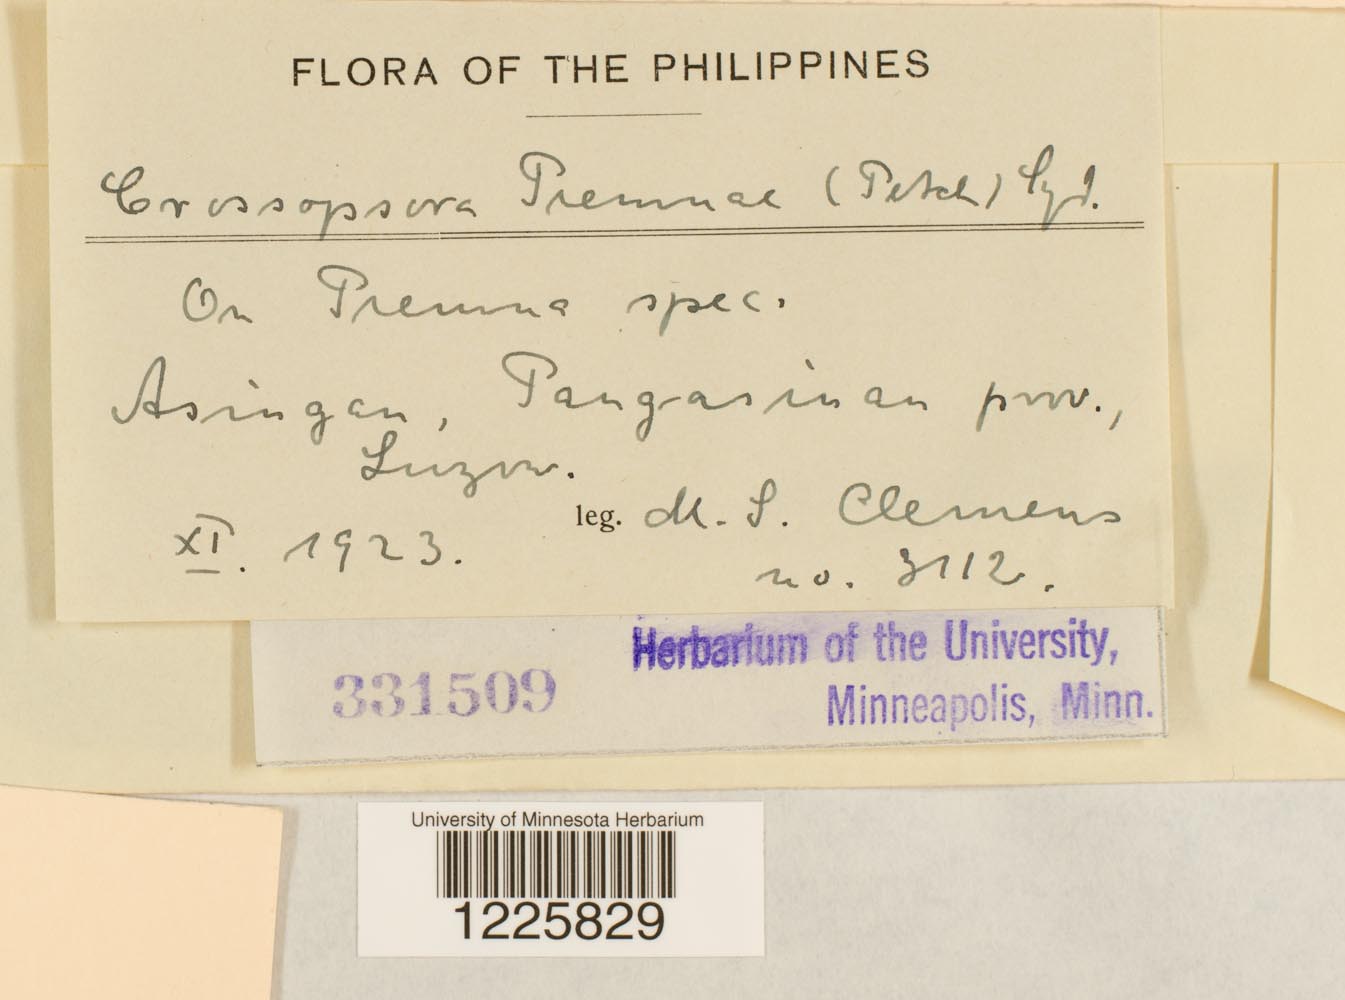 FLORA OF THE PHILIPPINES
Crossopsora Premnae (Petch) Syd.
On Premna spec.
Asingan, Pangasinan prov.,
Luzon.
leg. M. S. Clemens
XI. 1923.
no. 3112.
Herbarium of the University,
331509
Minneapolis, Minn.
University of Minnesota Herbarium
1225829